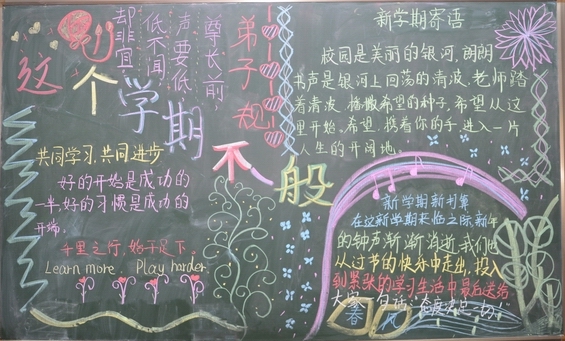 这个学期不一般
弟子规
尊长前,
声要低
低不闻
却非宜
共同学习,共同进步
好的开始是成功的
一半,好的习惯是成功的
开端。
千里之行,始于足下。
Learn more Play harder.
新学期寄语
校园是美丽的银河,朗朗
书声是银河上回荡的清波,老师踏
着清波,播撒希望的种子,希望从这
里开始,希望,携着你的手,进入一片
人生的开阔地。
新学期新列车
在这新学期来临之际,新年
的钟声渐渐消逝,我们也
从过节的快乐中走出,投入
到紧张的学习生活中最后送给
大家一句话:态度决定一切
春风